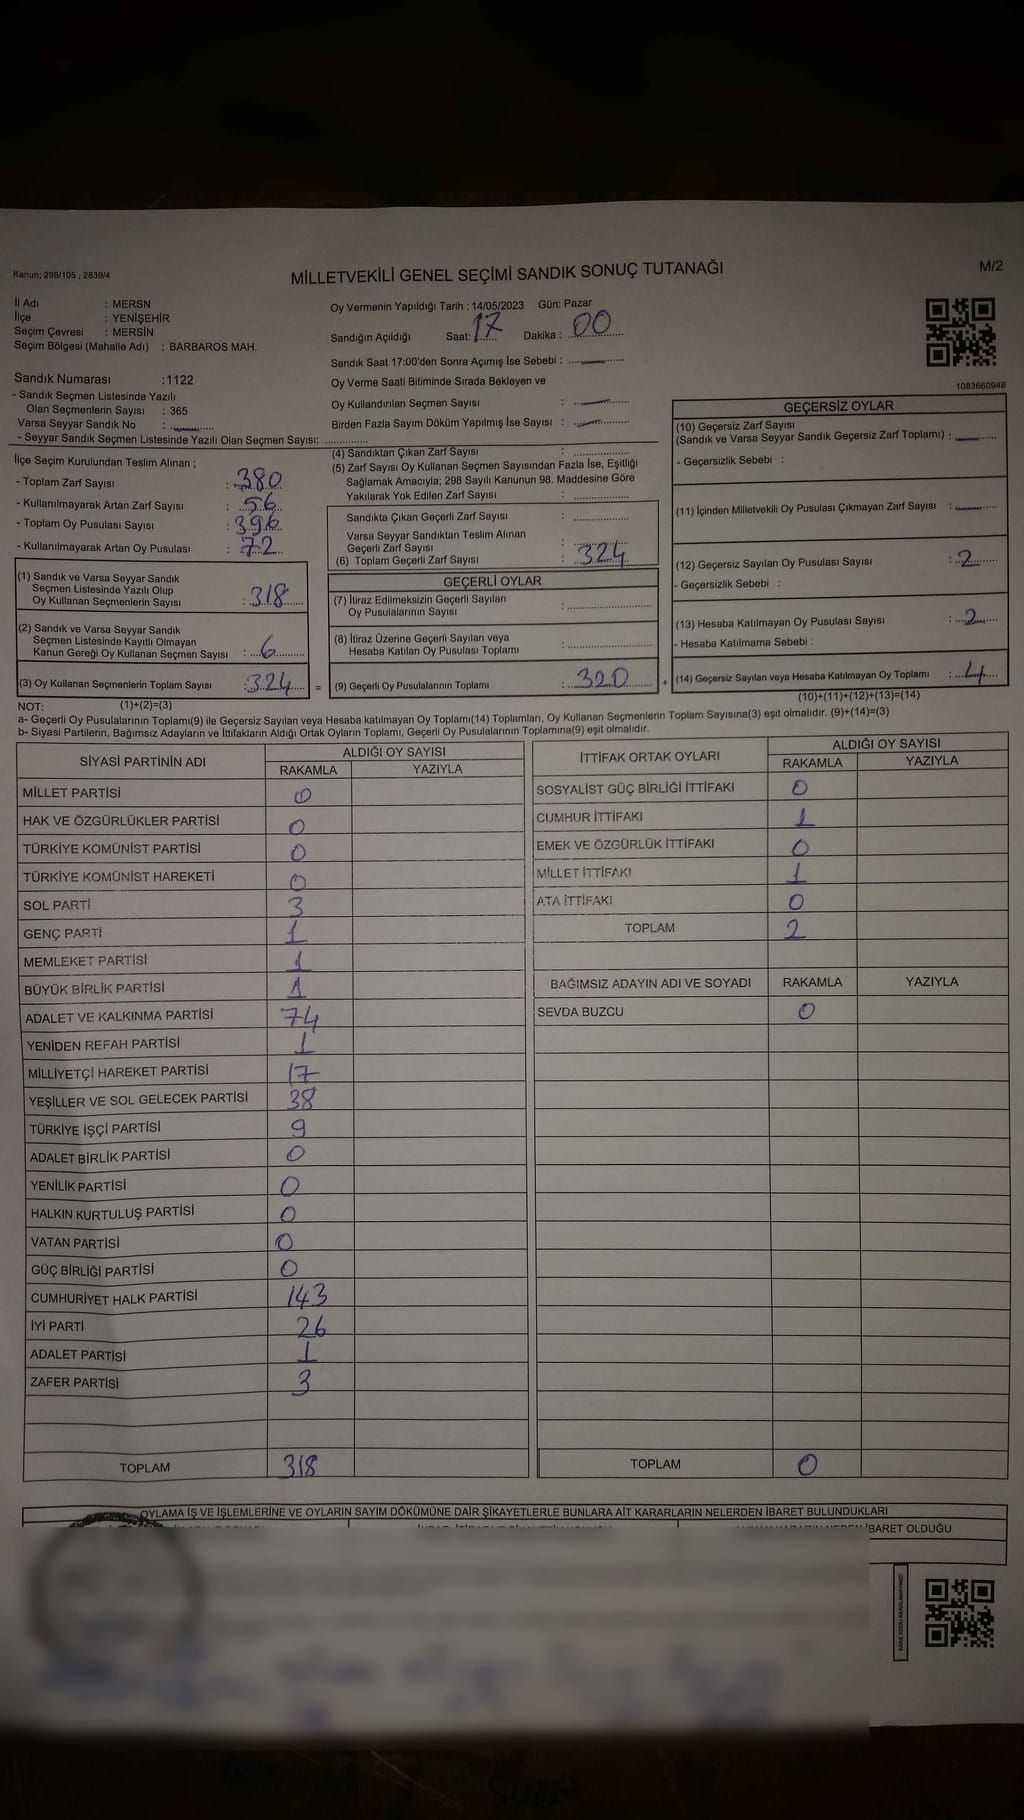 Kanun; 298/105 , 2839/4
MİLLETVEKİLİ GENEL SEÇİMİ SANDIK SONUÇ TUTANAĞI
M/2
İl Adı : MERSN
İlçe : YENİŞEHİR
Seçim Çevresi : MERSİN
Seçim Bölgesi (Mahalle Adı) : BARBAROS MAH.
Sandık Numarası :1122
- Sandık Seçmen Listesinde Yazılı
Olan Seçmenlerin Sayısı : 365
Varsa Seyyar Sandık No :
- Seyyar Sandık Seçmen Listesinde Yazılı Olan Seçmen Sayısı:
Oy Vermenin Yapıldığı Tarih : 14/05/2023 Gün: Pazar
Sandığın Açıldığı Saat: 17 Dakika : 00
Sandık Saat 17:00'den Sonra Açımış İse Sebebi :
Oy Verme Saati Bitiminde Sırada Bekleyen ve
Oy Kullandırılan Seçmen Sayısı :
Birden Fazla Sayım Döküm Yapılmış İse Sayısı :
1083660948
İlçe Seçim Kurulundan Teslim Alınan ;
- Toplam Zarf Sayısı : 380
- Kullanılmayarak Artan Zarf Sayısı : 56
- Toplam Oy Pusulası Sayısı : 396
- Kullanılmayarak Artan Oy Pusulası : 72
(1) Sandık ve Varsa Seyyar Sandık
Seçmen Listesinde Yazılı Olup
Oy Kullanan Seçmenlerin Sayısı : 318
(2) Sandık ve Varsa Seyyar Sandık
Seçmen Listesinde Kayıtlı Olmayan
Kanun Gereği Oy Kullanan Seçmen Sayısı : 6
(3) Oy Kullanan Seçmenlerin Toplam Sayısı : 324 =
(4) Sandıktan Çıkan Zarf Sayısı :
(5) Zarf Sayısı Oy Kullanan Seçmen Sayısından Fazla İse, Eşitliği
Sağlamak Amacıyla; 298 Sayılı Kanunun 98. Maddesine Göre
Yakılarak Yok Edilen Zarf Sayısı :
Sandıkta Çıkan Geçerli Zarf Sayısı :
Varsa Seyyar Sandıktan Teslim Alınan
Geçerli Zarf Sayısı :
(6) Toplam Geçerli Zarf Sayısı : 324
GEÇERLİ OYLAR
(7) İtiraz Edilmeksizin Geçerli Sayılan
Oy Pusulalarının Sayısı :
(8) İtiraz Üzerine Geçerli Sayılan veya
Hesaba Katılan Oy Pusulası Toplamı :
(9) Geçerli Oy Pusulalarının Toplamı : 320 +
GEÇERSİZ OYLAR
(10) Geçersiz Zarf Sayısı
(Sandık ve Varsa Seyyar Sandık Geçersiz Zarf Toplamı) :
- Geçersizlik Sebebi :
(11) İçinden Milletvekili Oy Pusulası Çıkmayan Zarf Sayısı :
(12) Geçersiz Sayılan Oy Pusulası Sayısı : 2
- Geçersizlik Sebebi :
(13) Hesaba Katılmayan Oy Pusulası Sayısı : 2
- Hesaba Katılmama Sebebi :
(14) Geçersiz Sayılan veya Hesaba Katılmayan Oy Toplamı : 4
NOT: (1)+(2)=(3)
(10)+(11)+(12)+(13)=(14)
a- Geçerli Oy Pusulalarının Toplamı(9) ile Geçersiz Sayılan veya Hesaba katılmayan Oy Toplamı(14) Toplamları, Oy Kullanan Seçmenlerin Toplam Sayısına(3) eşit olmalıdır. (9)+(14)=(3)
b- Siyasi Partilerin, Bağımsız Adayların ve İttifakların Aldığı Ortak Oyların Toplamı, Geçerli Oy Pusulalarının Toplamına(9) eşit olmalıdır.
SİYASİ PARTİNİN ADI ALDIĞI OY SAYISI
RAKAMLA YAZIYLA
MİLLET PARTİSİ 0
HAK VE ÖZGÜRLÜKLER PARTİSİ 0
TÜRKİYE KOMÜNİST PARTİSİ 0
TÜRKİYE KOMÜNİST HAREKETİ 0
SOL PARTİ 3
GENÇ PARTİ 1
MEMLEKET PARTİSİ 1
BÜYÜK BİRLİK PARTİSİ 1
ADALET VE KALKINMA PARTİSİ 74
YENİDEN REFAH PARTİSİ 1
MİLLİYETÇİ HAREKET PARTİSİ 17
YEŞİLLER VE SOL GELECEK PARTİSİ 38
TÜRKİYE İŞÇİ PARTİSİ 9
ADALET BİRLİK PARTİSİ 0
YENİLİK PARTİSİ 0
HALKIN KURTULUŞ PARTİSİ 0
VATAN PARTİSİ 0
GÜÇ BİRLİĞİ PARTİSİ 0
CUMHURİYET HALK PARTİSİ 143
İYİ PARTİ 26
ADALET PARTİSİ 1
ZAFER PARTİSİ 3
TOPLAM 318
İTTİFAK ORTAK OYLARI ALDIĞI OY SAYISI
RAKAMLA YAZIYLA
SOSYALİST GÜÇ BİRLİĞİ İTTİFAKI 0
CUMHUR İTTİFAKI 1
EMEK VE ÖZGÜRLÜK İTTİFAKI 0
MİLLET İTTİFAKI 1
ATA İTTİFAKI 0
TOPLAM 2
BAĞIMSIZ ADAYIN ADI VE SOYADI RAKAMLA YAZIYLA
SEVDA BUZCU 0
TOPLAM 0
OYLAMA İŞ VE İŞLEMLERİNE VE OYLARIN SAYIM DÖKÜMÜNE DAİR ŞİKAYETLERLE BUNLARA AİT KARARLARIN NELERDEN İBARET BULUNDUKLARI
İBARET OLDUĞU